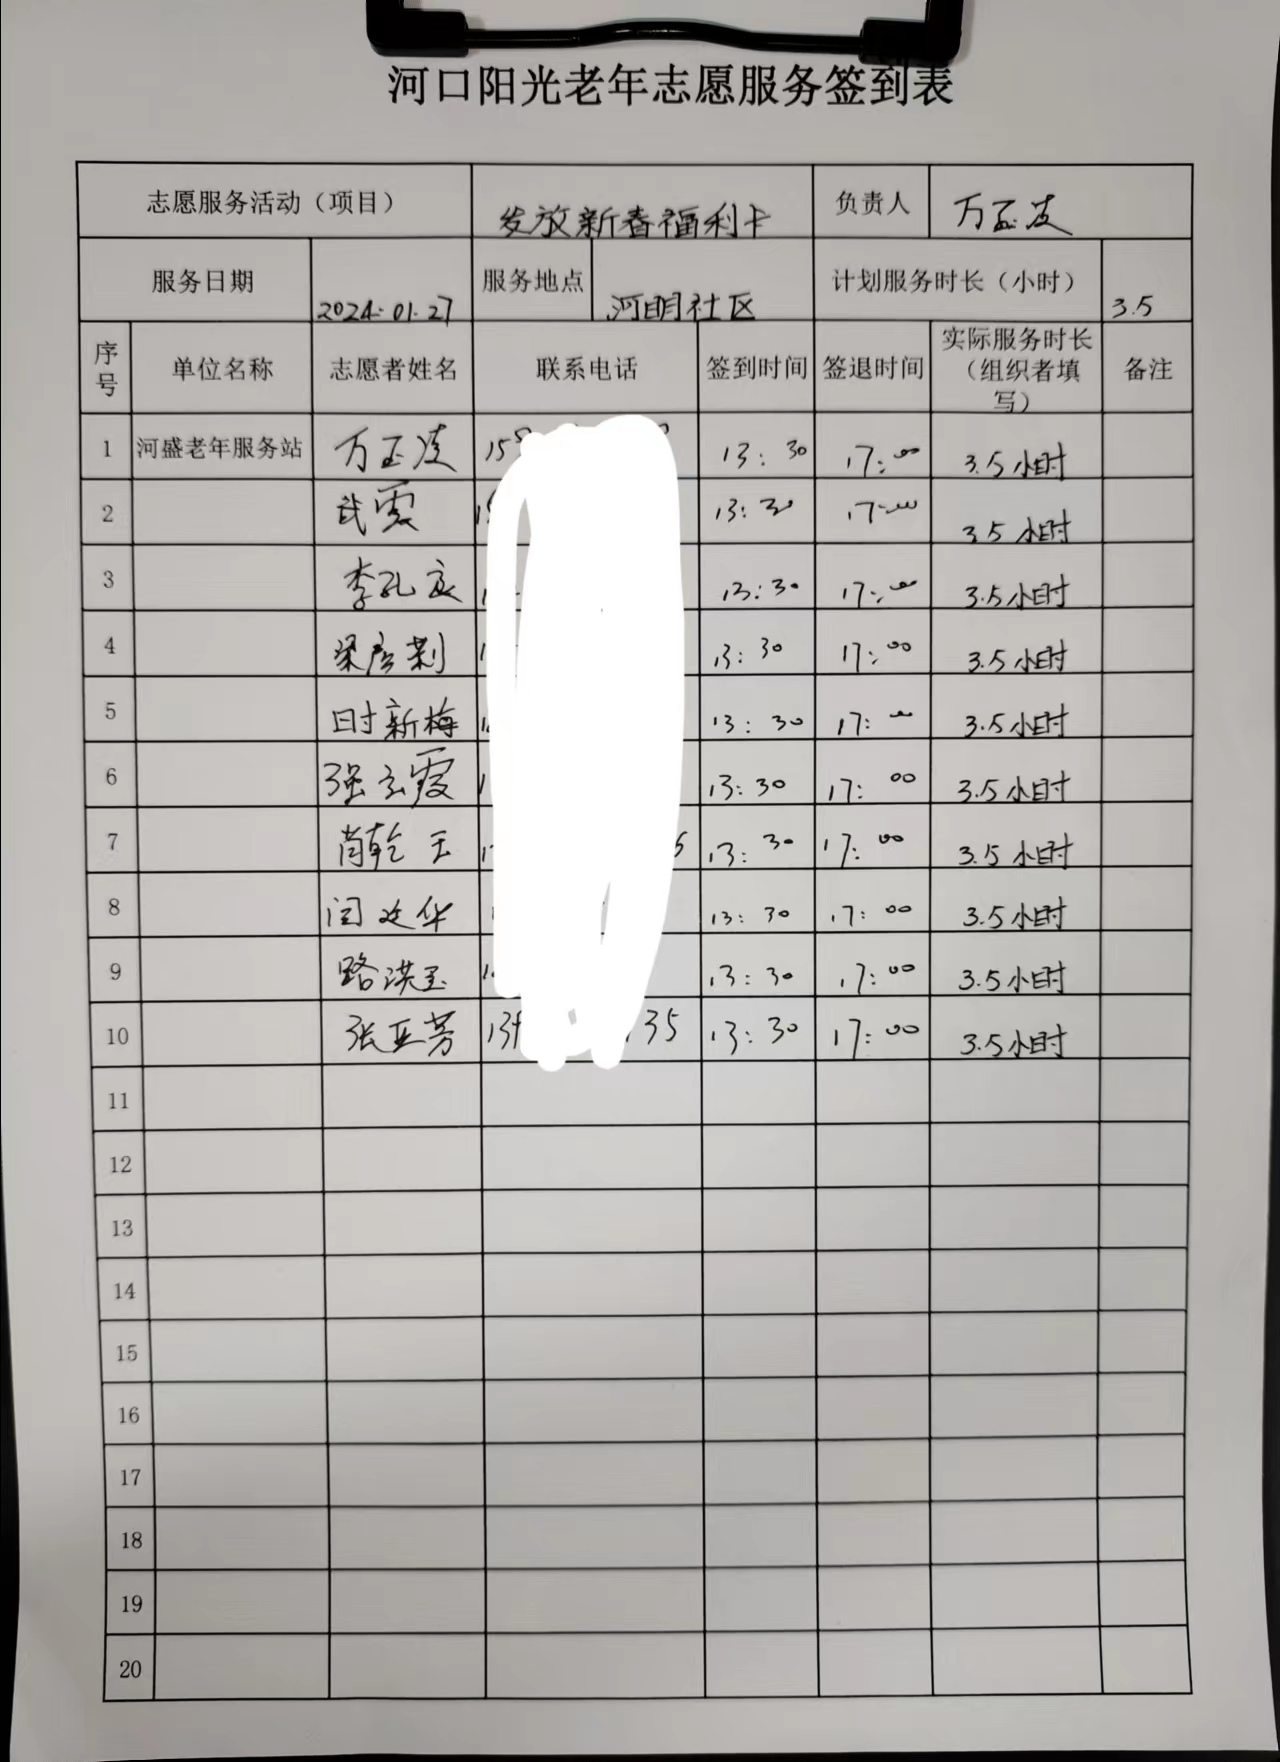 河口阳光老年志愿服务签到表
志愿服务活动（项目） 发放新春福利卡 负责人 万玉凌
服务日期 2024.01.27 服务地点 河明社区 计划服务时长（小时） 3.5
序号 单位名称 志愿者姓名 联系电话 签到时间 签退时间 实际服务时长（组织者填写） 备注
1 河盛老年服务站 万玉凌 13:30 17:00 3.5小时
2 武霞 13:30 17:00 3.5小时
3 13:30 17:00 3.5小时
4 13:30 17:00 3.5小时
5 时新梅 13:30 17:00 3.5小时
6 强玄霞 13:30 17:00 3.5小时
7 肖乾玉 13:30 17:00 3.5小时
8 13:30 17:00 3.5小时
9 路洪玉 13:30 17:00 3.5小时
10 张亚芳 35 13:30 17:00 3.5小时
11
12
13
14
15
16
17
18
19
20